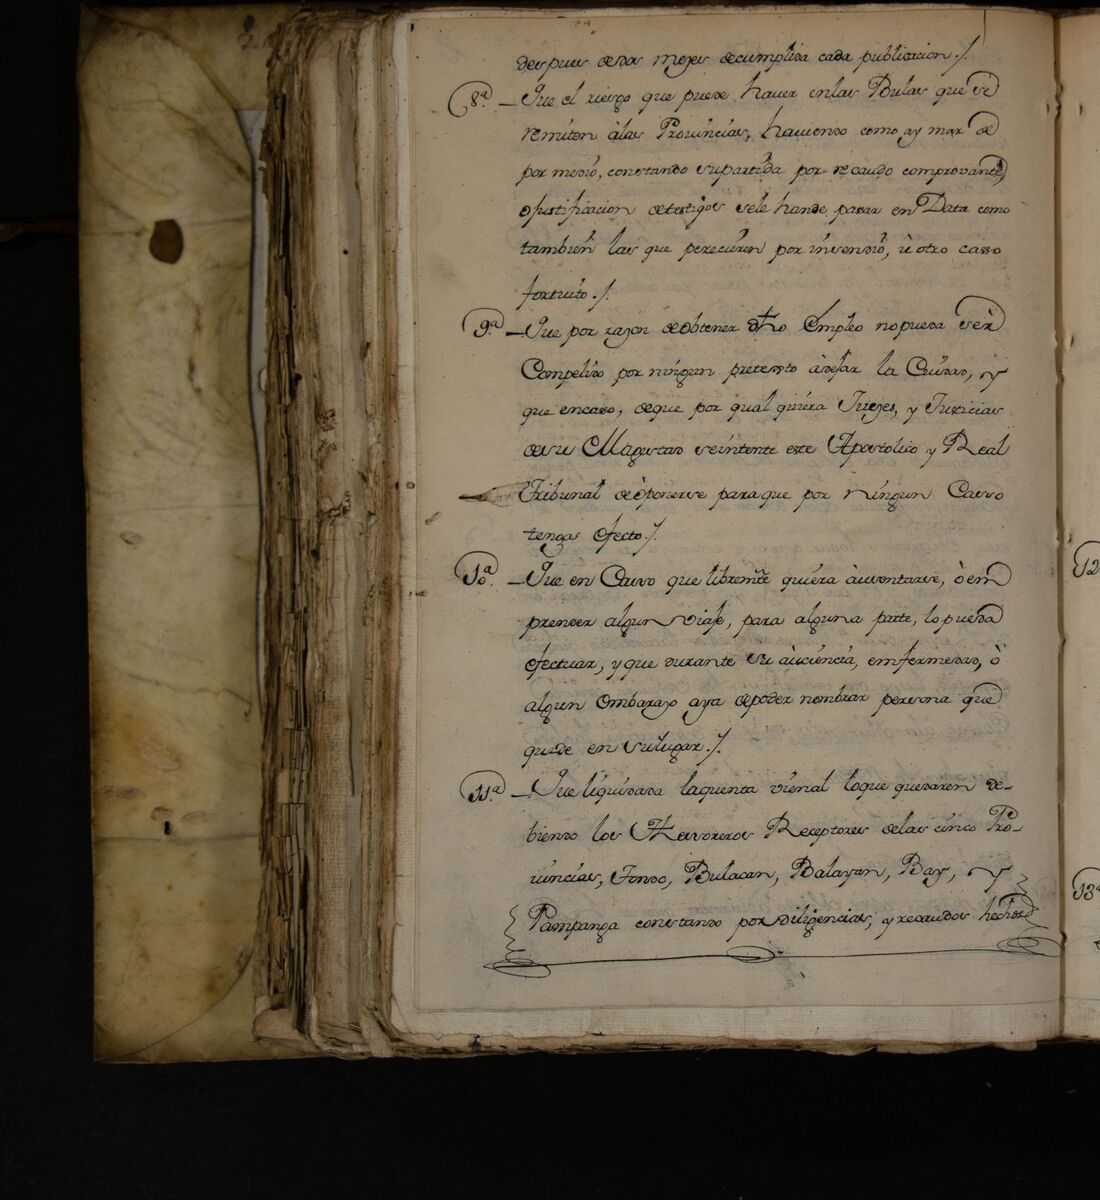 despues de dos meses de cumplida cada publicacion./.
8ª. – Que el riesgo que puede haver en las Bulas que sè
remiten à las Provincias, haviendo como ay mar de
por medio, constando su partida por recaudo comprovante,
ò justificacion de testigos se le han de pasar en Data como
tambien las que perecieren por insendio, ù otro casso
fortuito./.
9ª – Que por razon de obtener dho Empleo no pueda sèr
Compelido por ningun pretexto à dejar la Ciudad, y
que en caso, de que por qual quiera Juezes, y Justicias
de su Magestad se intente este Apostolico y Real
Tribunal dè oponerse para que por ningun Casso
tenga efecto./.
10ª. – Que en Casso que libremte quiera àusentarse, ò em
prender algun viaje, para alguna parte, lo pueda
efectuar, y que durante su àucencia, emfermedad, ò
algun Embarazo aya de poder nombrar persona que
quede en su lugar./.
11ª – Que liquidada la quenta vienal lo que quedaren de-
biendo los Thessoreros Receptores de las cinco Pro-
vincias, Tondo, Bulacan, Balayan, Bay, y
Pampanga constando por diligencias, y recaudos hechos
12
13ª